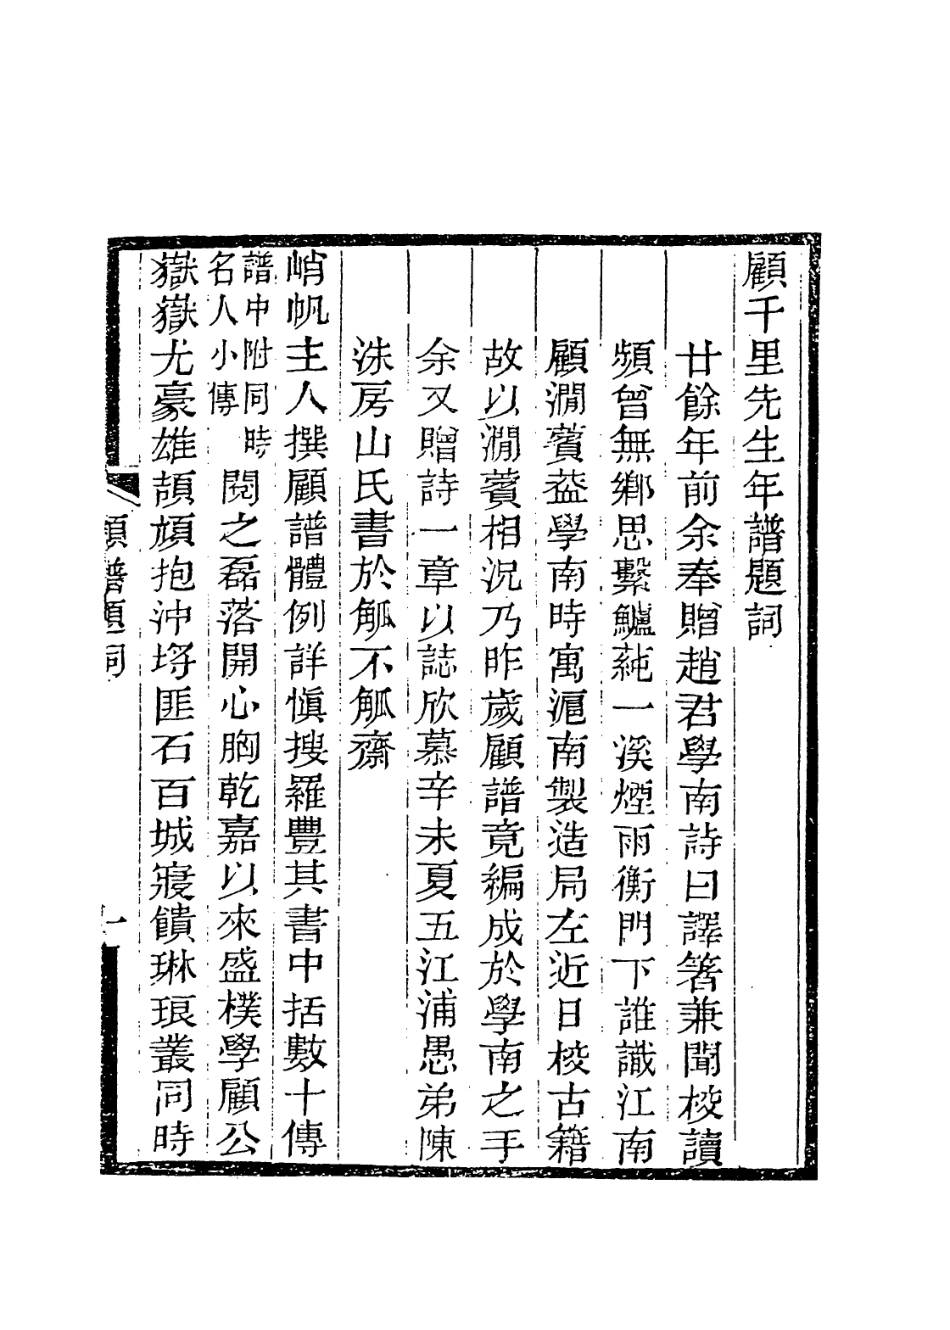 顧千里先生年譜題詞
廿餘年前余奉贈趙君學南詩曰譯箸兼聞校讀
頻曾無鄉思繫鱸蒓一溪煙雨衡門下誰識江南
顧澗薲葢學南時寓滬南製造局左近日校古籍
故以澗薲相況乃昨歲顧譜竟編成於學南之手
余又贈詩一章以誌欣慕辛未夏五江浦愚弟陳
洙房山氏書於觚不觚齋
峭帆主人撰顧譜體例詳愼搜羅豐其書中括數十傳
譜中附同時
名人小傳
閱之磊落開心胸乾嘉以來盛樸學顧公
嶽嶽尤豪雄頡頏抱沖垿匪石百城寢饋琳琅叢同時
顧譜題詞
一